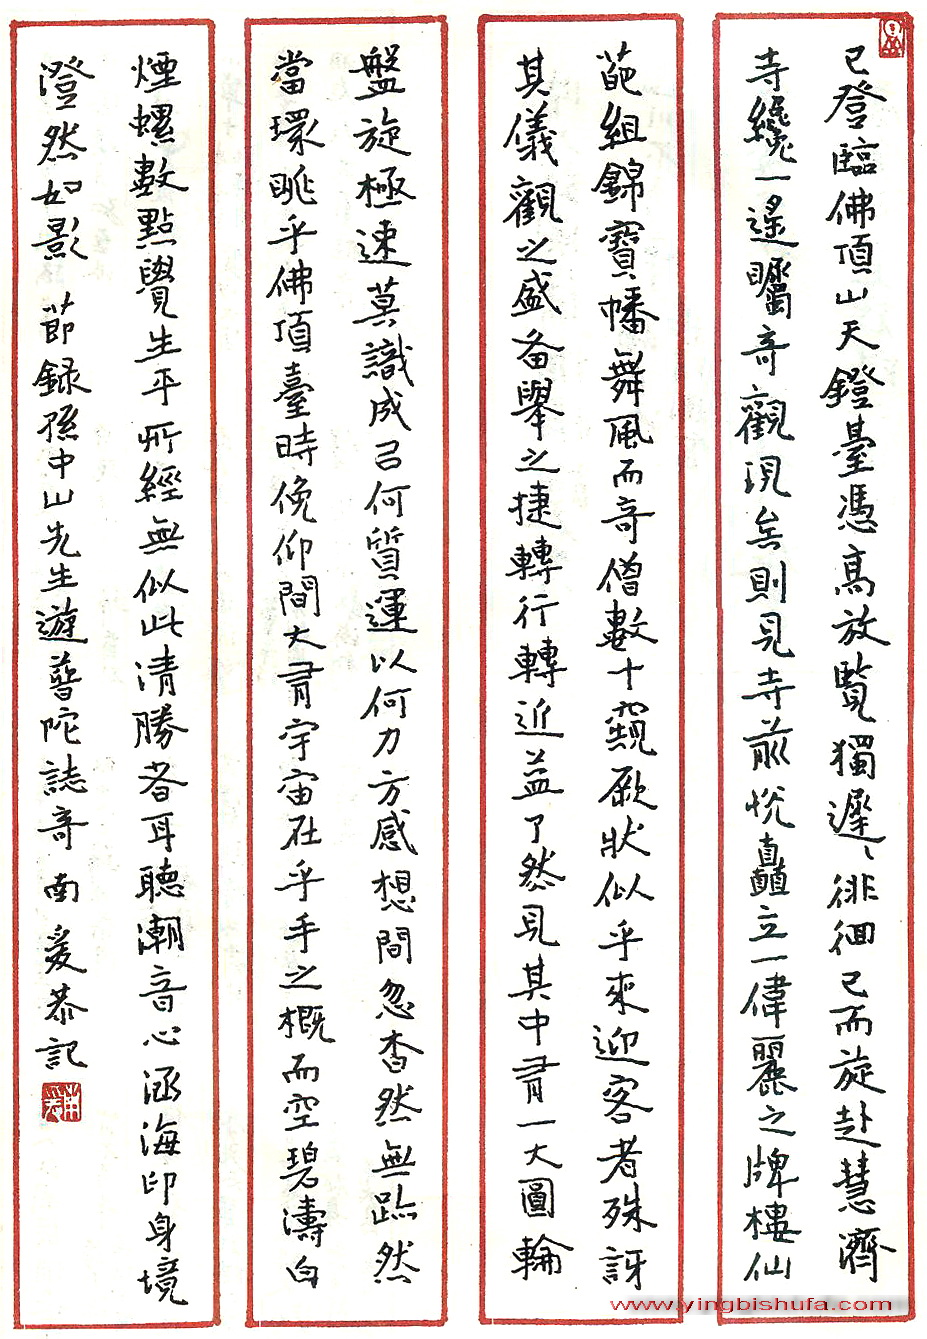 已登臨佛頂山天鐙臺憑高放覽獨遲遲徘徊已而旋赴慧濟
寺纔一遙矚奇觀現矣則見寺前恍矗立一偉麗之牌樓仙
葩組錦寶幡舞風而奇僧數十窺厥狀似乎來迎客者殊訝
其儀觀之盛备舉之捷轉行轉近益了然見其中有一大圓輪
盤旋極速莫識成已何質運以何力方感想間忽杳然無跡然
當環眺乎佛頂臺時俛仰間大有宇宙在乎手之概而空碧濤白
煙螺數點覺生平所經無似此清勝者耳聽潮音心涵海印身境
澄然如影 節録孫中山先生遊普陀誌奇 南爰恭記
www.yingbishufa.com